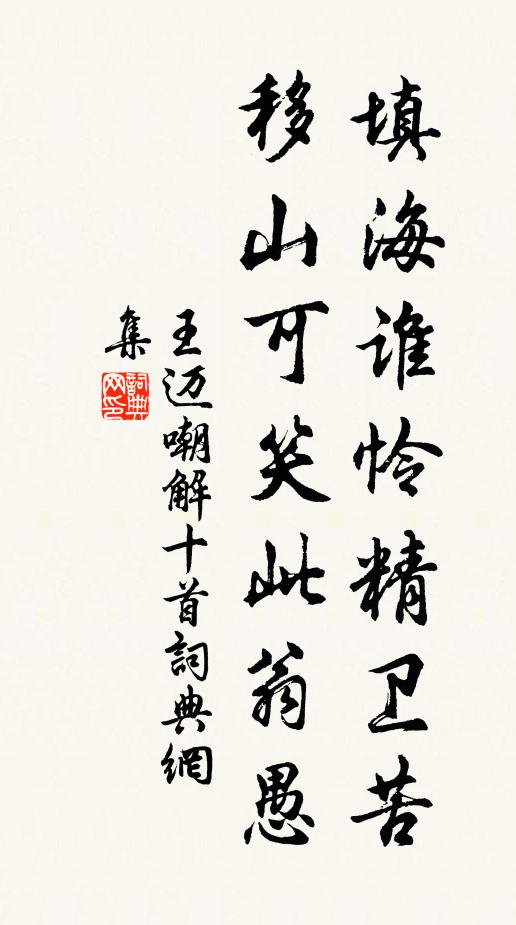 填海谁怜精卫苦
移山可笑此翁愚
王迈嘲解十首詞典網
集
詞典网印